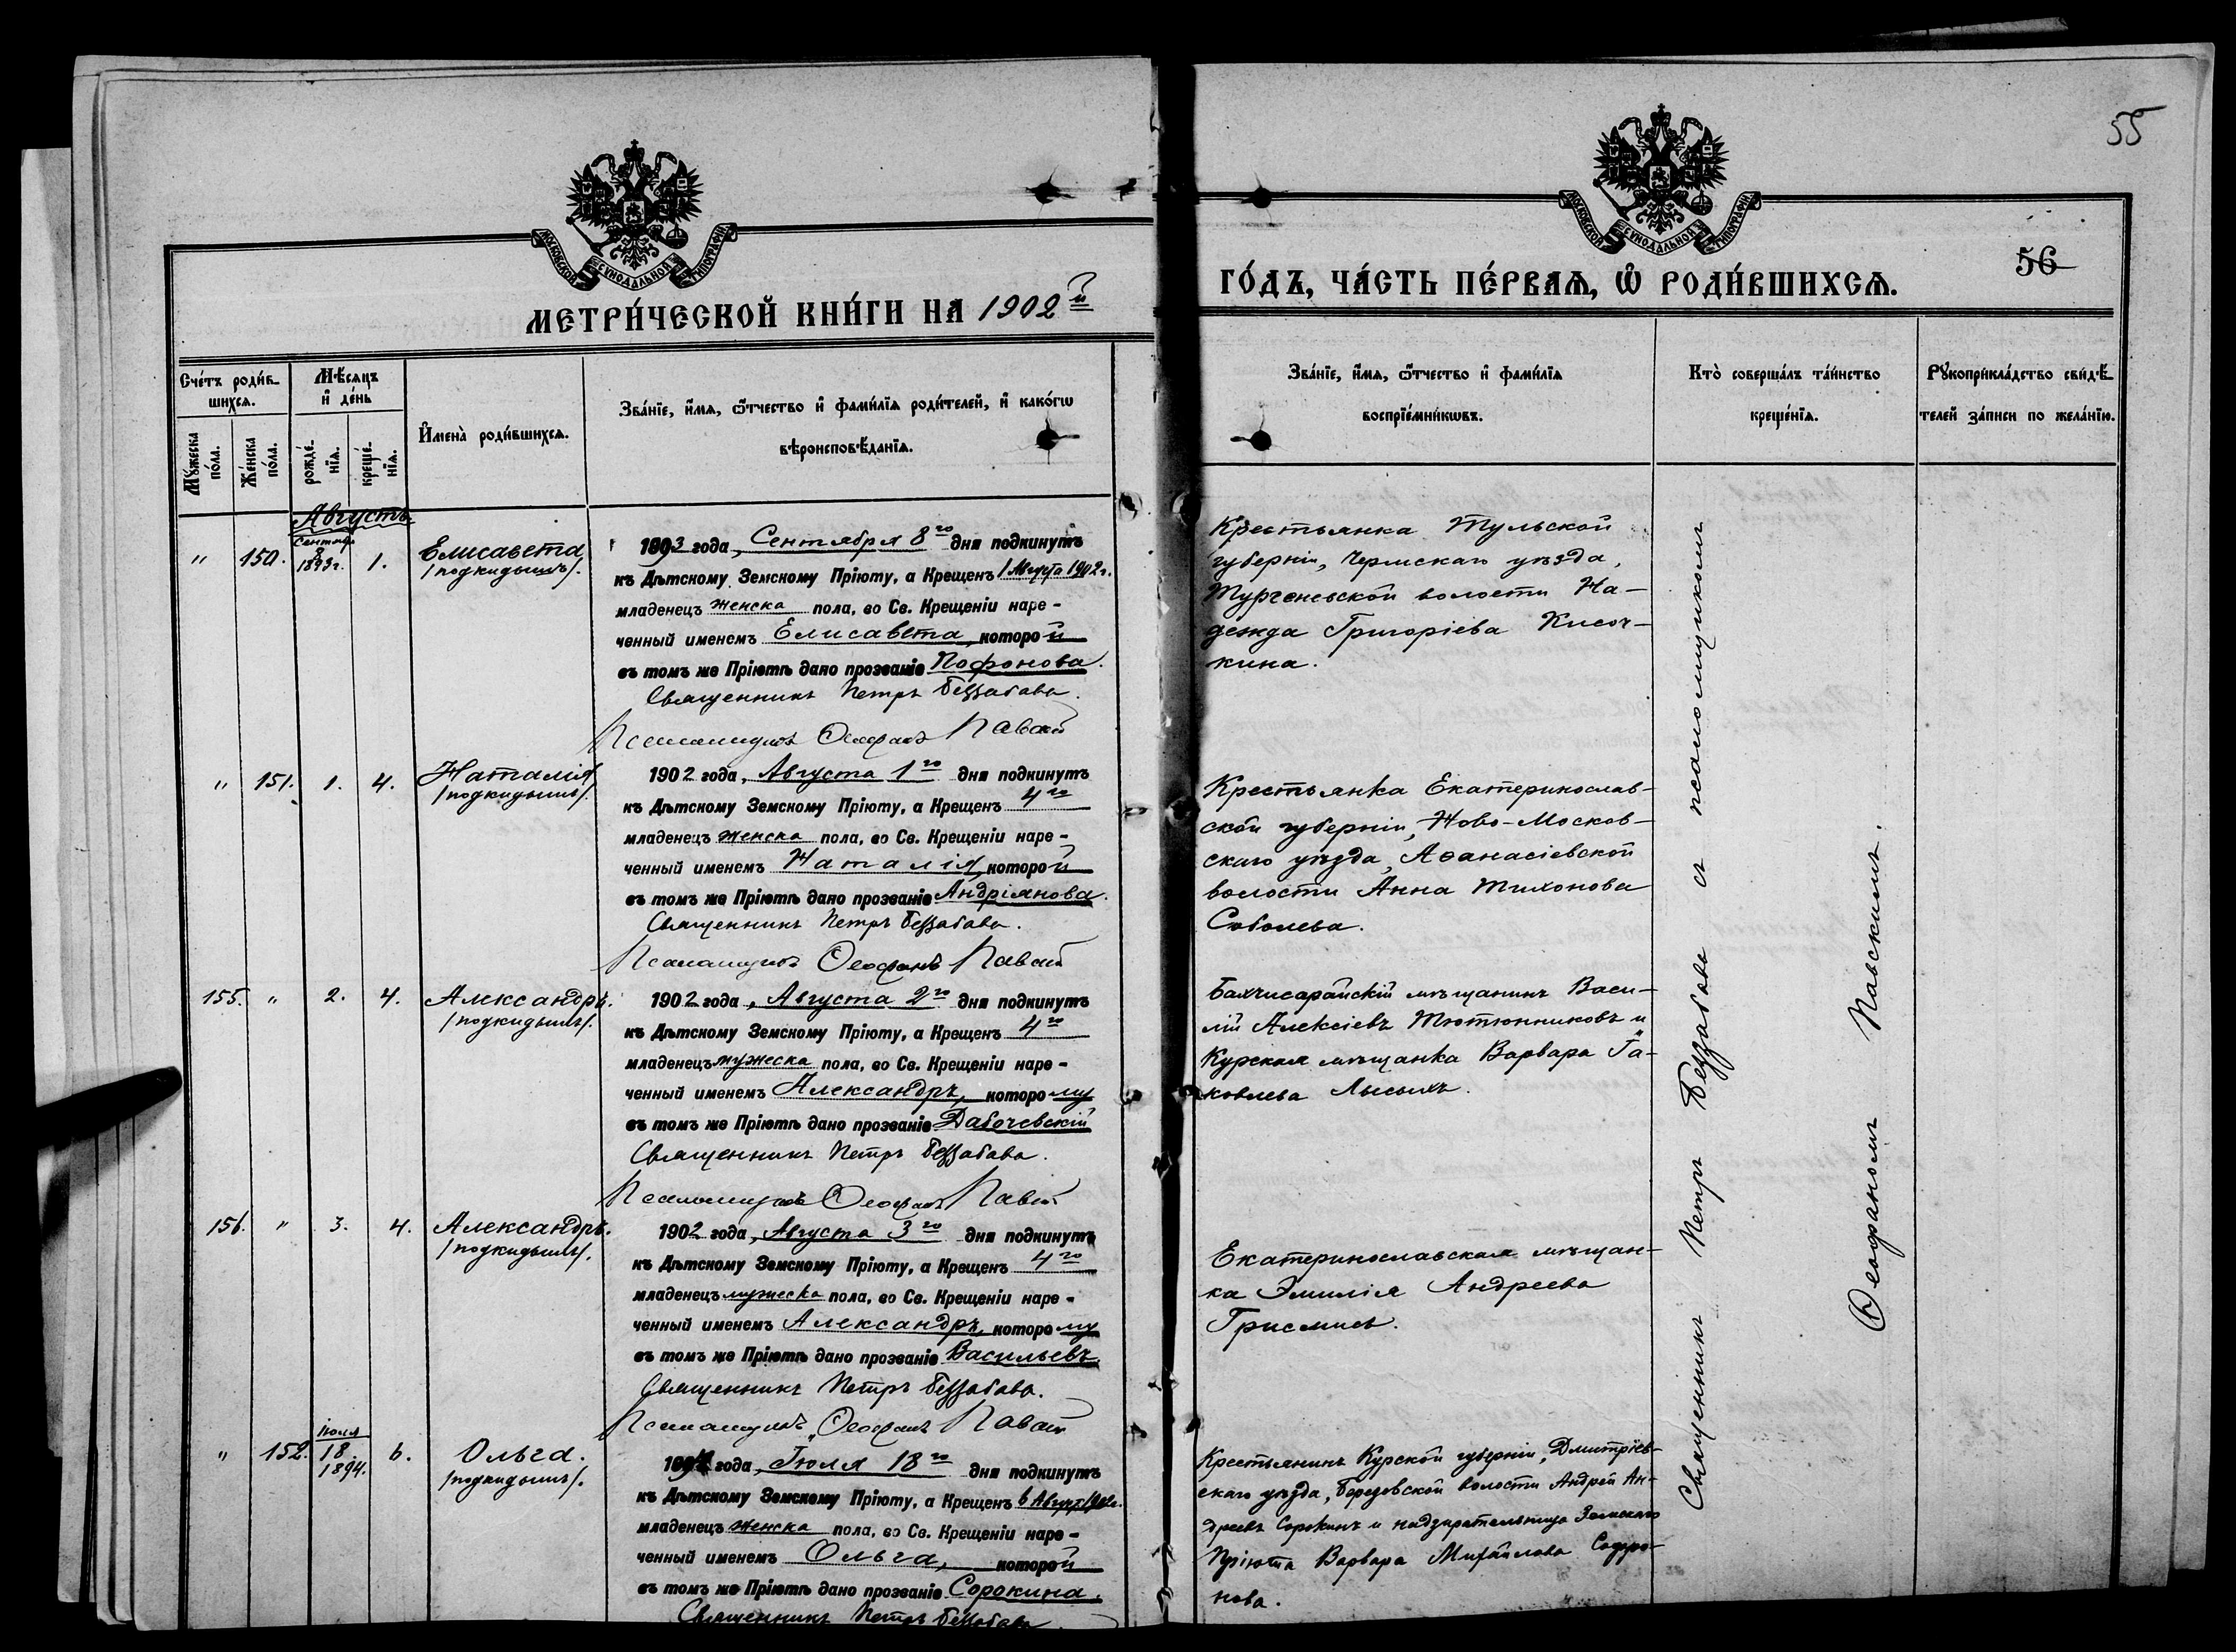 55
56
МОСКОВСКОЙ СѴНОДАЛЬНОЙ ТИПОГРАФІИ
МОСКОВСКОЙ СѴНОДАЛЬНОЙ ТИПОГРАФІИ
МЕТРИ́ЧЕСКОЙ КНИ́ГИ НА 1902й
ГО́ДЪ, ЧА́СТЬ ПЕ́РВАѦ, Ѡ҆ РОДИ́ВШИХСѦ.
Сче́тъ роди́в-
шихсѧ.
Мꙋ́жеска по́ла.
Же́нска по́ла.
Мѣ́сѧцъ
и҆ де́нь
рожде́-
нїѧ.
креще́-
нїѧ.
И҆мена̀ роди́вшихсѧ.
Зва́нїе, и҆́мѧ, ѻ҆́тчество и҆ фами́лїѧ роди́телей, и҆ како́гѡ
вѣроисповѣ́данїѧ.
Зва́нїе, и҆́мѧ, ѻ҆́тчество и҆ фами́лїѧ
воспрїе́мникѡвъ.
Кто̀ соверша́лъ та́инство
креще́нїѧ.
Рꙋкоприкла́дство свидѣ́-
телей за́писи по жела́нїю.
Августъ
" 150. Сентяб. 8 1893г. 1. Елисавета
/подкидышъ/.
1893 года, Сентября 8го дня подкинутъ
къ Дѣтскому Земскому Пріюту, а Крещенъ 1 Августа 1902 г.
младенецъ женска пола, во Св. Крещеніи наре-
ченный именемъ Елисавета, которой
въ томъ же Пріютѣ дано прозваніе Пафонова.
Священникъ Петръ Беззабава.
Псаломщикъ Ѳеофанъ Павскій
Крестьянка Тульской
губерніи, Чернскаго уѣзда,
Тургеневской волости На-
дежда Григоріева Кисоч-
кина.
" 151. 1. 4. Наталія
/подкидышъ/.
1902 года, Августа 1го дня подкинутъ
къ Дѣтскому Земскому Пріюту, а Крещенъ 4го
младенецъ женска пола, во Св. Крещеніи наре-
ченный именемъ Наталія, которой
въ томъ же Пріютѣ дано прозваніе Андріянова.
Священникъ Петръ Беззабава.
Псаломщикъ Ѳеофанъ Павскій
Крестьянка Екатеринослав-
ской губерніи, Ново-Москов-
скаго уѣзда, Аѳанасіевской
волости Анна Тихонова
Соболева.
155. " 2. 4. Александръ.
/подкидышъ/.
1902 года, Августа 2го дня подкинутъ
къ Дѣтскому Земскому Пріюту, а Крещенъ 4го
младенецъ мужеска пола, во Св. Крещеніи наре-
ченный именемъ Александръ, которому
въ томъ же Пріютѣ дано прозваніе Дабочевскій
Священникъ Петръ Беззабава.
Псаломщикъ Ѳеофанъ Павскій
Бахчисарайскій мѣщанинъ Васи-
лій Алексіевъ Тютюнниковъ и
Курская мѣщанка Варвара Іа-
ковлева Лысыхъ.
156. " 3. 4. Александръ.
/подкидышъ/.
1902 года, Августа 3го дня подкинутъ
къ Дѣтскому Земскому Пріюту, а Крещенъ 4го
младенецъ мужеска пола, во Св. Крещеніи наре-
ченный именемъ Александръ, которому
въ томъ же Пріютѣ дано прозваніе Васильевъ.
Священникъ Петръ Беззабава.
Псаломщикъ Ѳеофанъ Павскій
Екатеринославская мѣщан-
ка Эмилія Андреева
" 152. Іюля 18. 1894. 6. Ольга.
/подкидышъ/.
1894 года, Іюля 18го дня подкинутъ
къ Дѣтскому Земскому Пріюту, а Крещенъ 6 Август. 1902г.
младенецъ женска пола, во Св. Крещеніи наре-
ченный именемъ Ольга, которой
въ томъ же Пріютѣ дано прозваніе Сорокина.
Священникъ Петръ Беззабава.
Крестьянинъ Курской губерніи, Дмитріев-
скаго уѣзда, Березовской волости Андрей Ан-
дреевъ Сорокинъ и надзирательница Земскаго
Пріюта Варвара Михайлова Софро-
нова.
Священникъ Петръ Беззабава съ псаломщикомъ
Ѳеофаномъ Павскимъ.